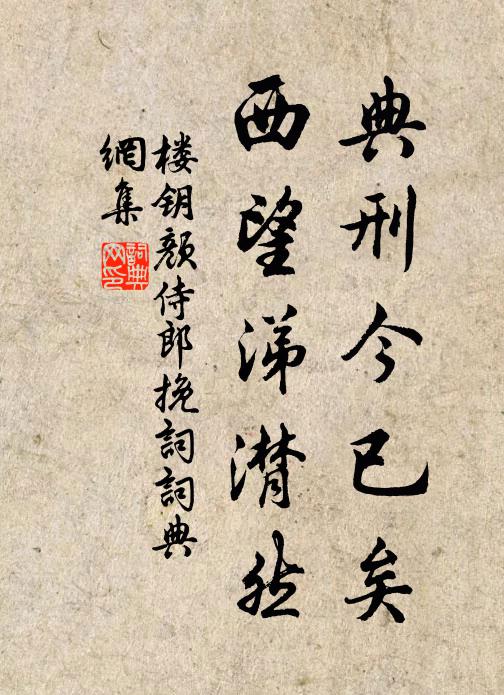 典刑今已矣
西望涕潸然
楼钥颜侍郎挽词词典
網集
詞典網印